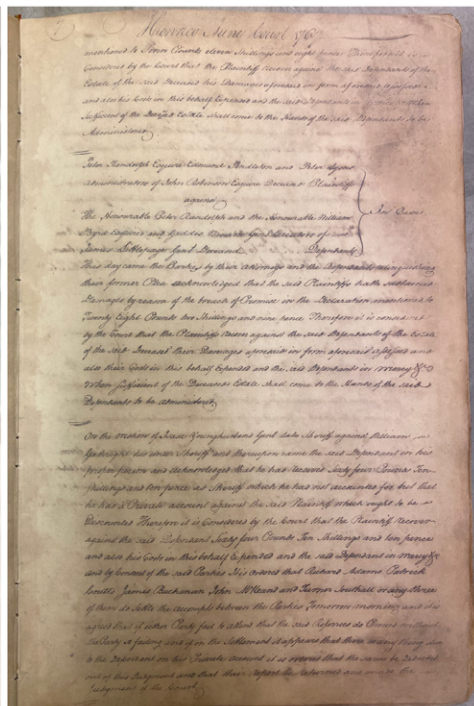 Henrico June Court 176
mentioned to Seven Pounds eleven Shillings and eight pence Therefore it is
Considered by the Court that the Plaintiff Recover against the said Defendants of the
Estate of the said Deceased his Damages aforesaid in form aforesaid assessed
and also his Costs in this behalf Expended and the said Defendants in
Sufficient of the Estate shall come to the Hands of the said Defendants to be
Administered
Peter Randolph Esquire Edmund Pendleton and Peter Lyons
Administrators of John Robinson Esquire Deceased Plaintiffs
against
The Honourable Peter Randolph and the Honourable William
Byrd Esquires and Gent Executors of
James Littlepage Gent Deceased Defendants
In Case
This day came the Parties by their Attornies and the Defendants relinquishing
their former Plea acknowledged that the said Plaintiffs hath sustained
Damages by reason of the breach of Promise in the Declaration mentioned to
Twenty Eight Pounds two Shillings and nine pence Therefore it is considered
by the Court that the Plaintiffs Recover against the said Defendants of the Estate
of the said Deceased their Damages aforesaid in form aforesaid assessed and
also their Costs in this behalf Expended and the said Defendants in Mercy &c
When Sufficient of the Deceased Estate shall come to the Hands of the said
Defendants to be administered
On the motion of Isaac Younghusband Gent late Sheriff against William
Gathright his under Sheriff and thereupon came the said Defendant in his
proper person and acknowledges that he has received Sixty four Pounds Ten
Shillings and ten pence as Sheriff which he has not accounted for but that
he has a Private account against the said Plaintiff which ought to be
Discounted Therefore it is Considered by the Court that the Plaintiff Recover
against the said Defendant Sixty four Pounds Ten Shillings and ten pence
and also his Costs in this behalf Expended and the said Defendant in mercy &c
and by Consent of the said Parties It is Ordered that Richard Adams Patrick
Coutts James Buchanan John McKeand and Turner Southall or any three
of them do Settle the accompts between the Parties Tomorrow morning and it is
agreed that if either Party fail to attend that the said Referees do Proceed without
the Party so failing and if in the Settlement it appears that there is any thing due
to the Defendant on his Private account it is ordered that the same be Deducted
out of this Judgment and that their Report be returned and made the
Judgment of the Court